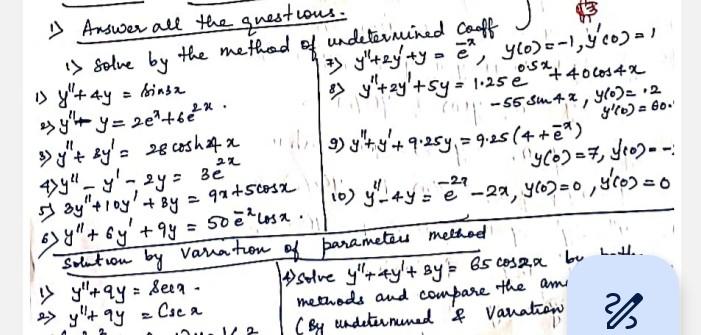 1) Answer all the questions:-
1) Solve by the method of undetermined Coeff
1) y''+4y = sin3x
2) y''+ y = 2eˣ+6e²ˣ.
3) y''+ 8y' = 28 cosh4x
4) y'' - y' - 2y = 3e²ˣ
5) 3y''+10y'+3y = 9x+5cosx
6) y''+6y'+9y = 50 e⁻ˣ cosx.
7) y''+2y'+y = e⁻ˣ, y(0)=-1, y'(0)=1
8) y''+2y'+5y = 1.25e^0.5x + 40cos4x
-55sin4x, y(0)=.2
y'(0)=60.
9) y''+y'+9.25y = 9.25(4+e⁻ˣ)
y(0)=7,
10) y''-4y = e⁻²ˣ-2x, y(0)=0, y'(0)=0
Solution by Variation of parameters method
1) y''+9y = Secx.
2) y''+9y = Cscx
4) Solve y''+4y'+3y = 65cos2x by
methods and compare the
(By undetermined & Variation